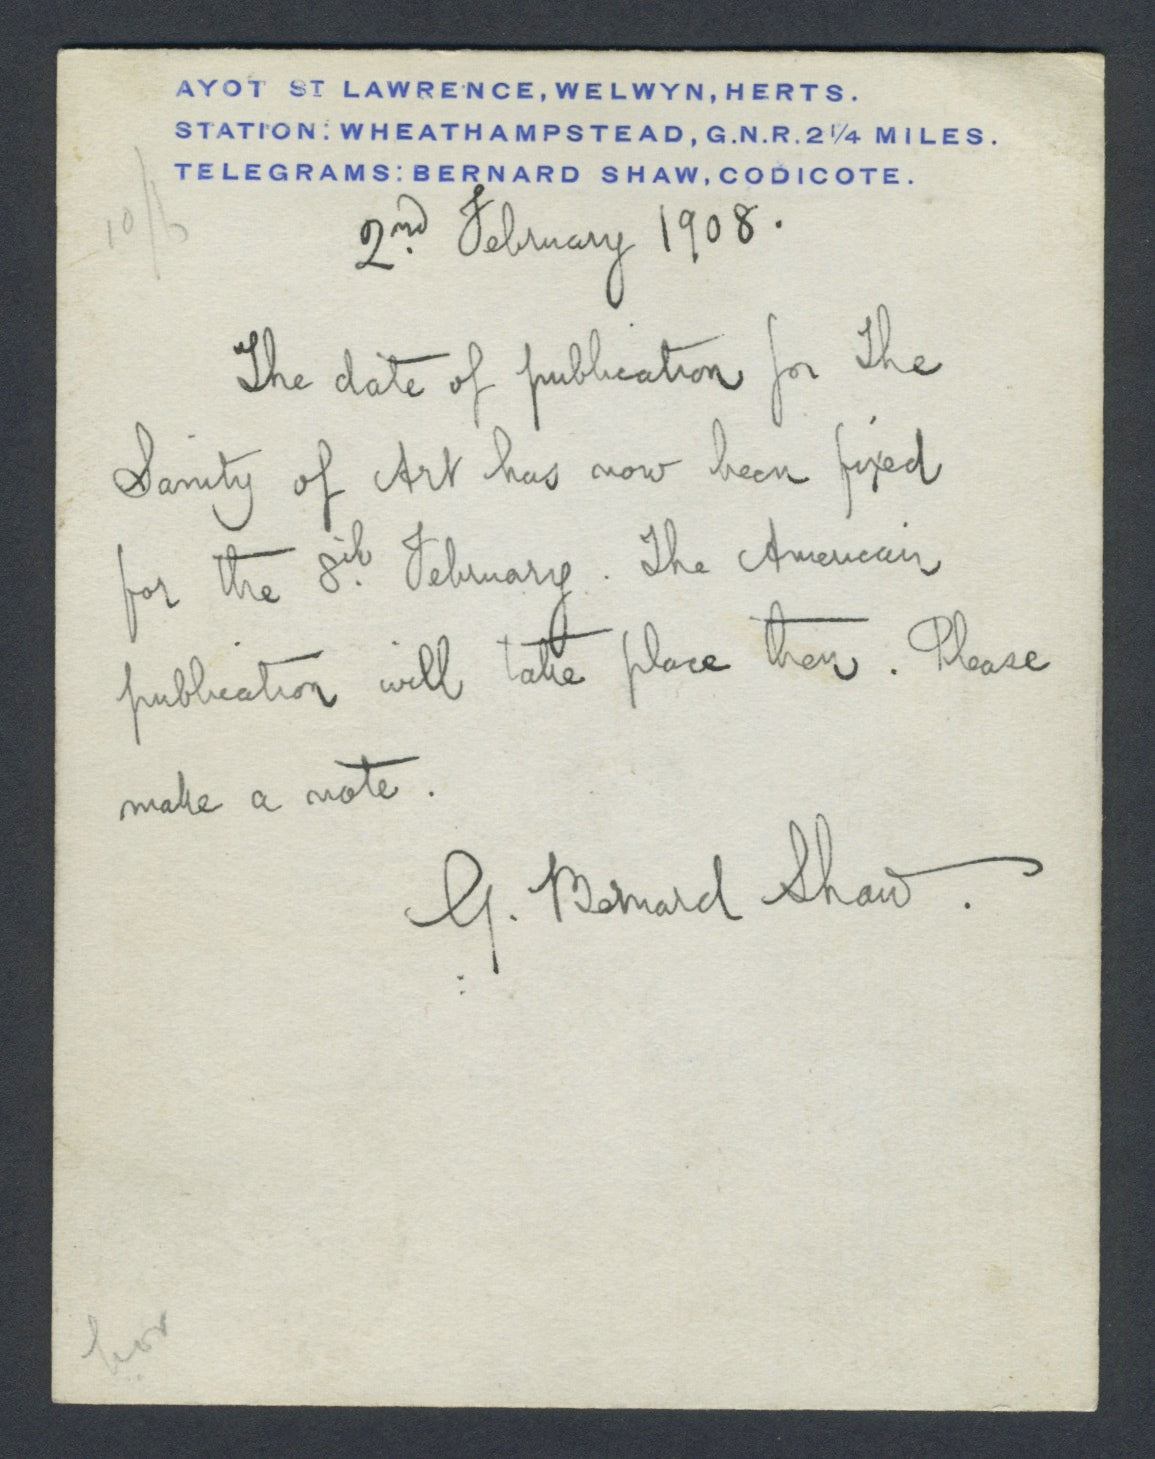 AYOT ST LAWRENCE, WELWYN, HERTS.
STATION: WHEATHAMPSTEAD, G.N.R. 2 1/4 MILES.
TELEGRAMS: BERNARD SHAW, CODICOTE.
10/
2nd February 1908.
The date of publication for The
Sanity of Art has now been fixed
for the 8th February. The American
publication will take place then. Please
make a note.
G. Bernard Shaw.